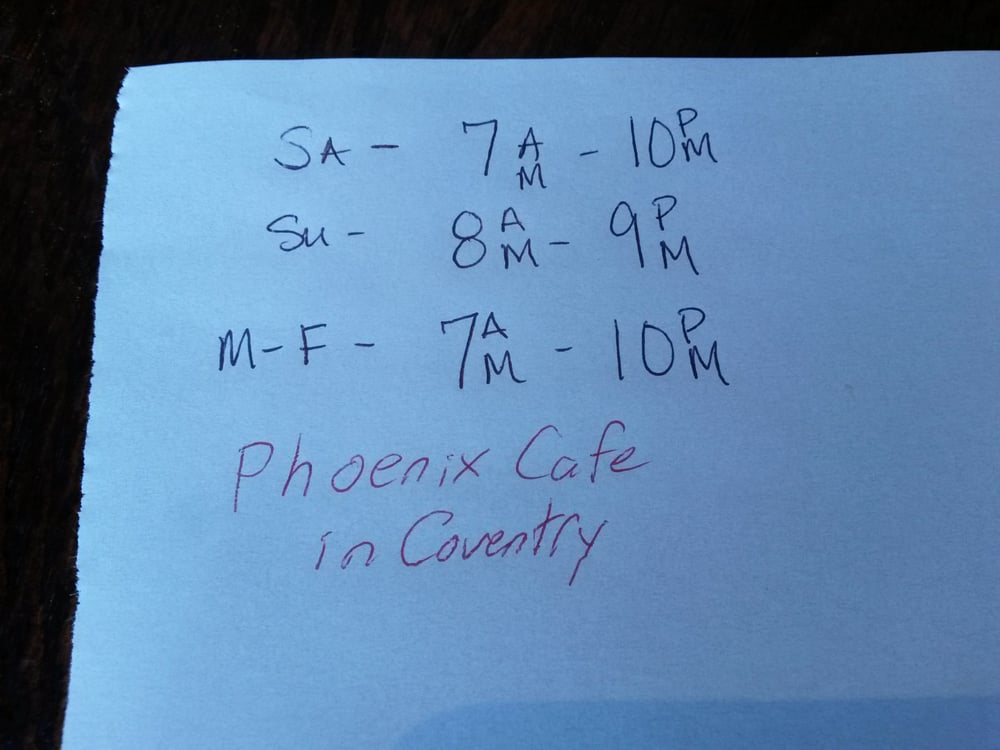 SA - 7AM - 10PM
Su - 8AM - 9PM
M-F - 7AM - 10PM
Phoenix Cafe
in Coventry